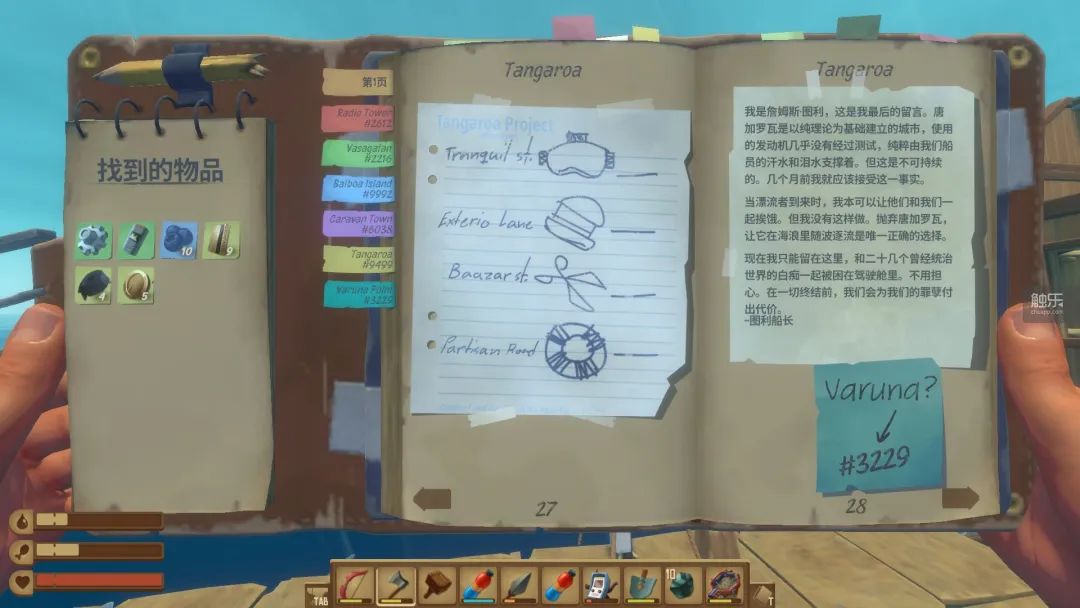 找到的物品
10
9
4
5
第1页
Radio Tower
#2612
Vasagatan
#2216
Balboa Island
#9992
Caravan Town
#6038
Tangaroa
#9499
Varuna Point
#3229
Tangaroa
Tangaroa Project
Tranquil st.
Exterio Lane
Baazar st.
Partisan Road
27
Tangaroa
我是詹姆斯·图利，这是我最后的留言。唐
加罗瓦是以纯理论为基础建立的城市，使用
的发动机几乎没有经过测试，纯粹由我们船
员的汗水和泪水支撑着。但这是不可持续
的。几个月前我就应该接受这一事实。
当漂流者到来时，我本可以让他们和我们一
起挨饿。但我没有这样做。抛弃唐加罗瓦，
让它在海浪里随波逐流是唯一正确的选择。
现在我只能留在这里，和二十几个曾经统治
世界的白痴一起被困在驾驶舱里。不用担
心。在一切终结前，我们会为我们的罪孽付
出代价。
–图利船长
Varuna?
#3229
28
触乐
chuapp.com
TAB
10
T